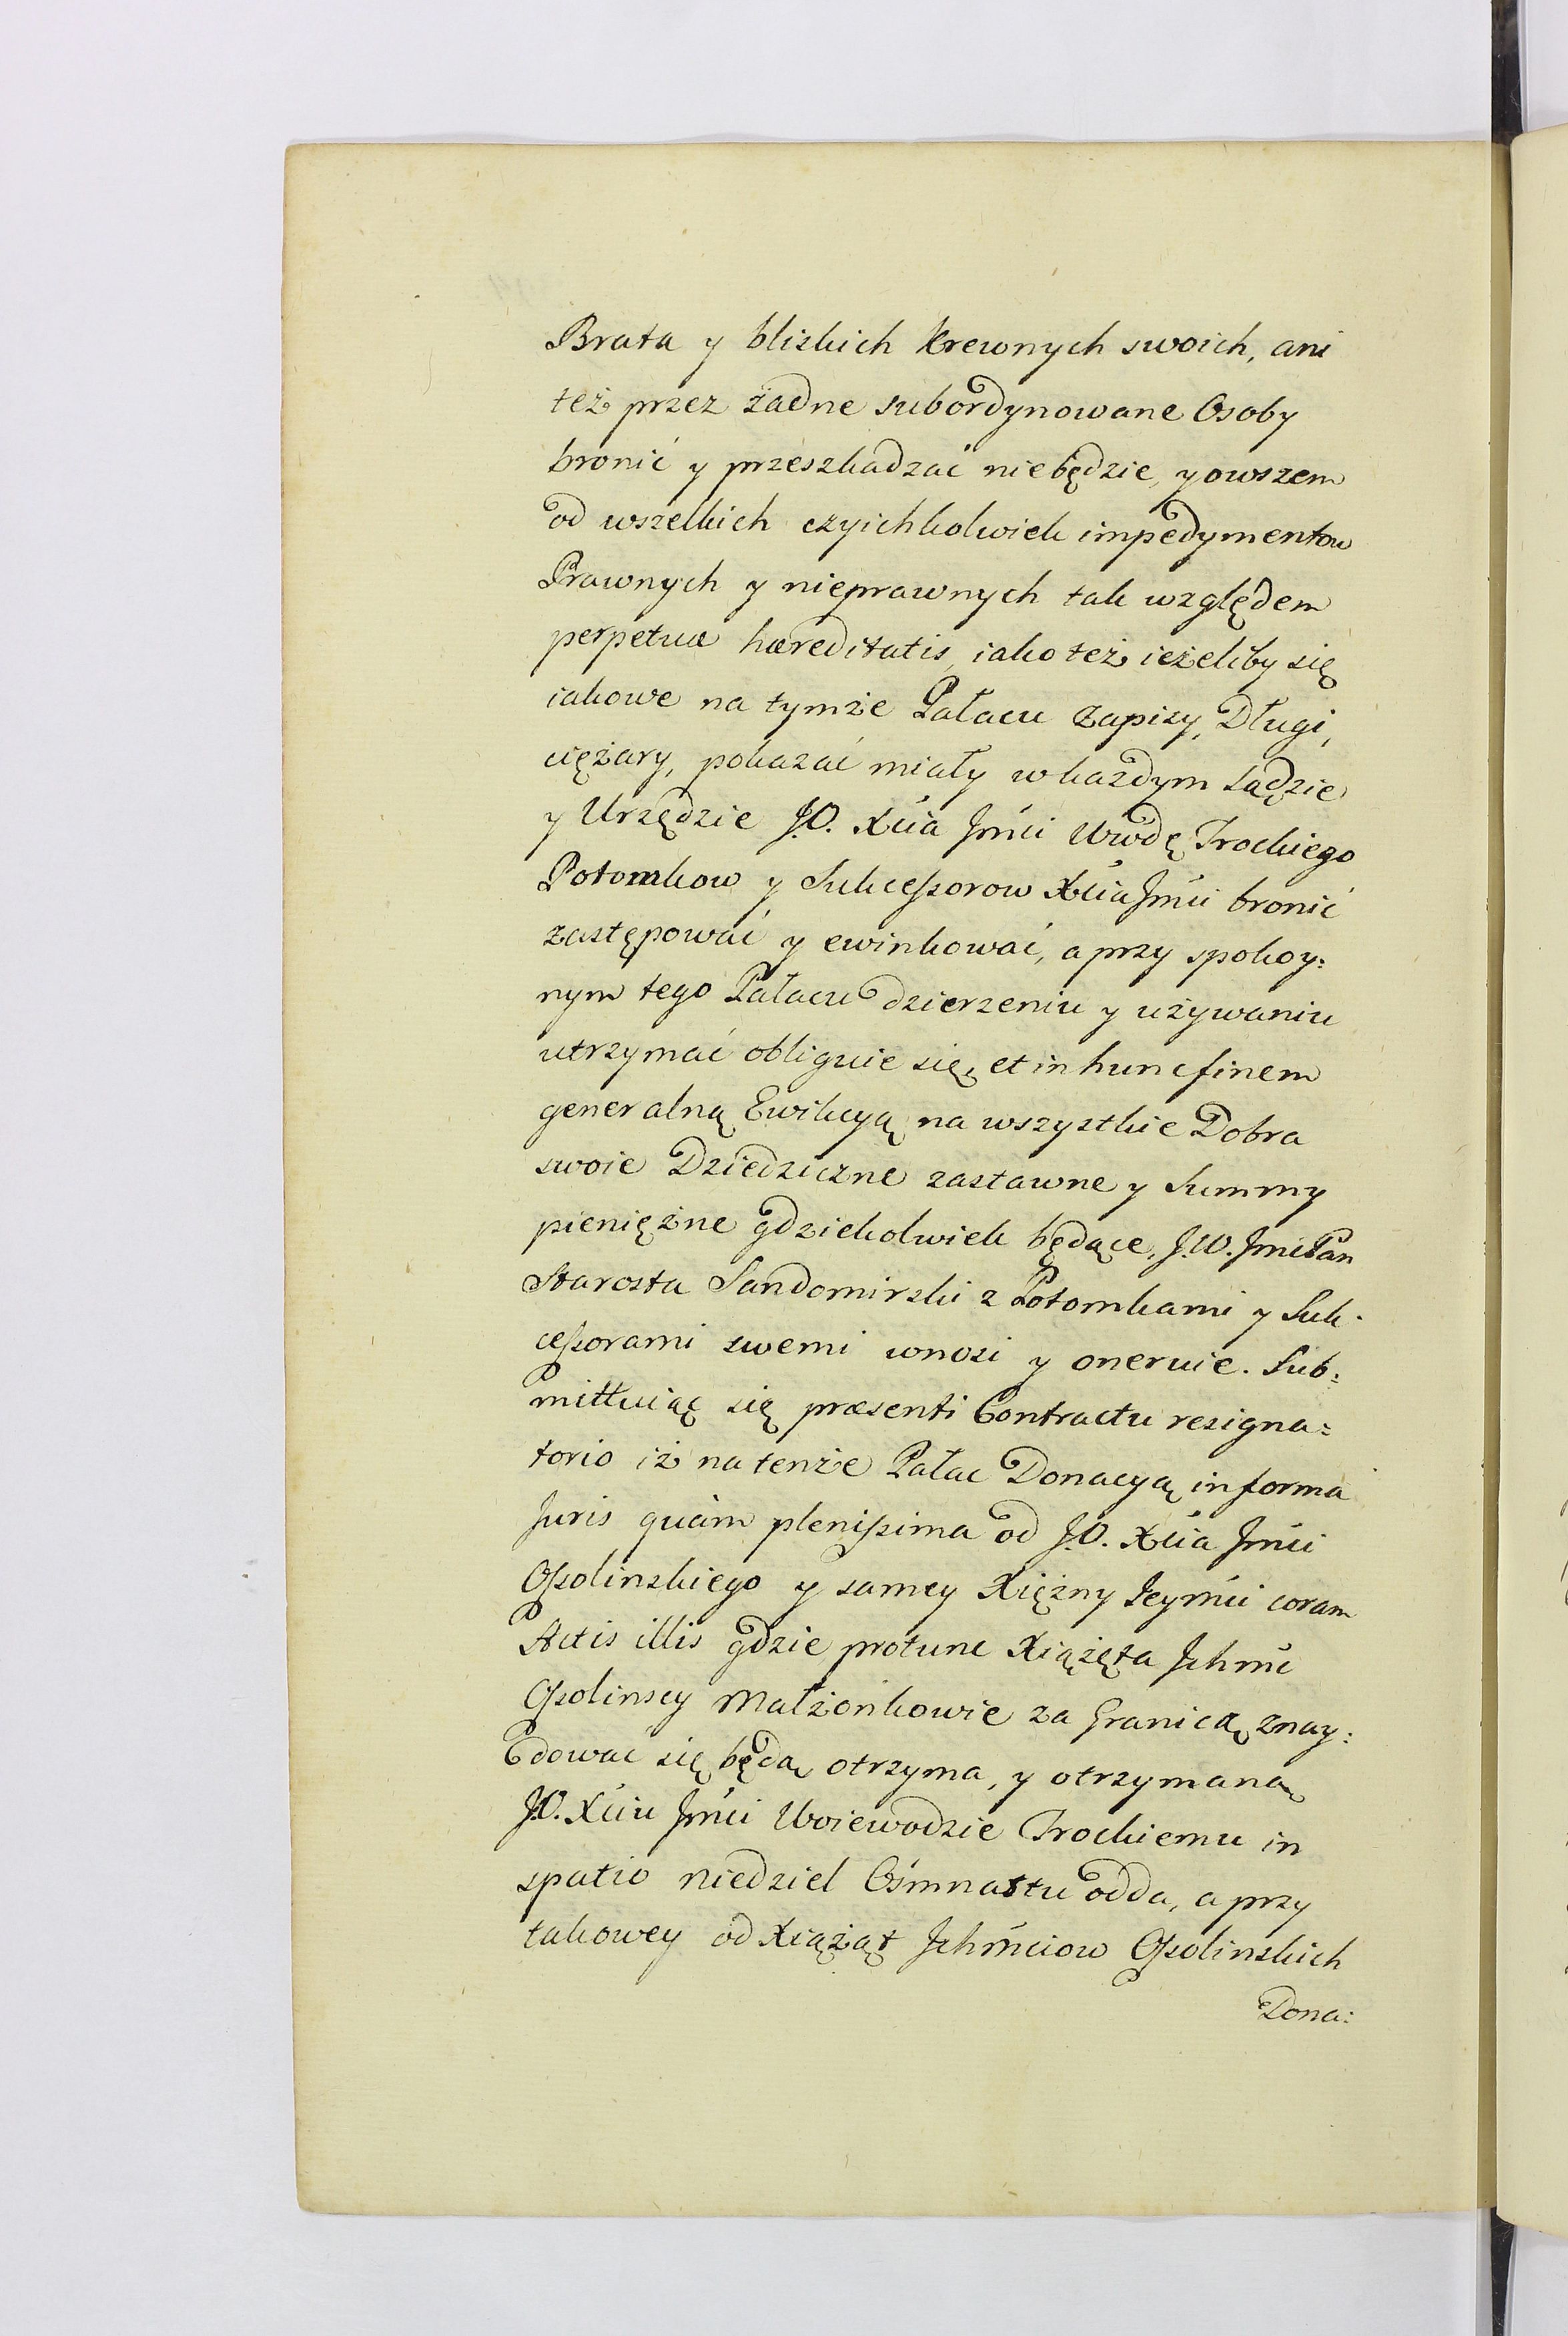 Brata y blizkich Krewnych swoich, ani
też przez żadne subordynowane Osoby
bronić y przeszkadzać niebędzie, y owszem
od wszelkich czyichkolwiek impedymentow
Prawnych y nieprawnych tak względem
perpetuæ hæreditatis, iako też ieżeliby się
iakowe na tymże Pałacu Zapisy, Długi,
ciężary, pokazać miały w każdym Sądzie
y Urzędzie J.O. Xcia Jmći Wwdę Trockiego
Potomkow y Sukceßorow Xcia Jmći bronić
zastępować y ewinkować, a przy spokoy:
nym tego Pałacu dzierzeniu y używaniu
utrzymać obliguie się, et in hunc finem
generalną Ewikcyą na wszystkie Dobra
swoie Dziedziczne zastawne y Summy
pieniężne gdziekolwiek będące, J.W. Jmć Pan
Starosta Sandomirski z Potomkami y Suk:
ceßorami swemi wnosi y oneruie. Sub:
mittuiąc się præsenti Contractu resigna:
torio iż na tenże Pałac Donacyą in forma
Juris quàm plenißima od J.O. Xcia Jmći
Oßolinskiego y samey Xiężny Jeymći coram
Actis illis gdzie protunc Xiążęta Jchmć
Oßolinscy Małżonkowie za Granicą znay:
dować się będą otrzyma, y otrzymaną
J.O. Xciu Jmći Woiewodzie Trockiemu in
spatio niedziel Ośmnastu odda, a przy
takowey od Xiążąt Jchmćiow Oßolinskich
Dona: